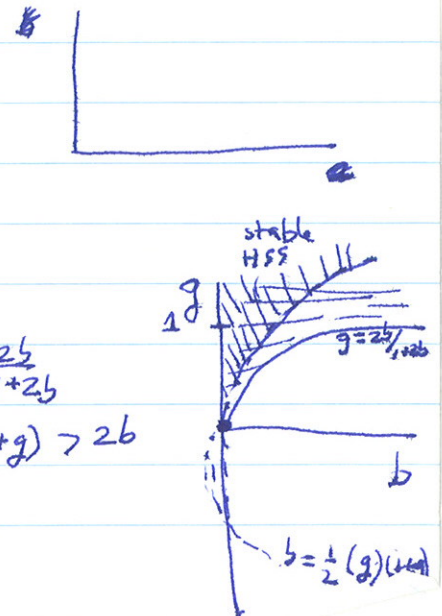 stable
HSS
g
1
g = 2b/1+2b
2b
+2b
+g) > 2b
b